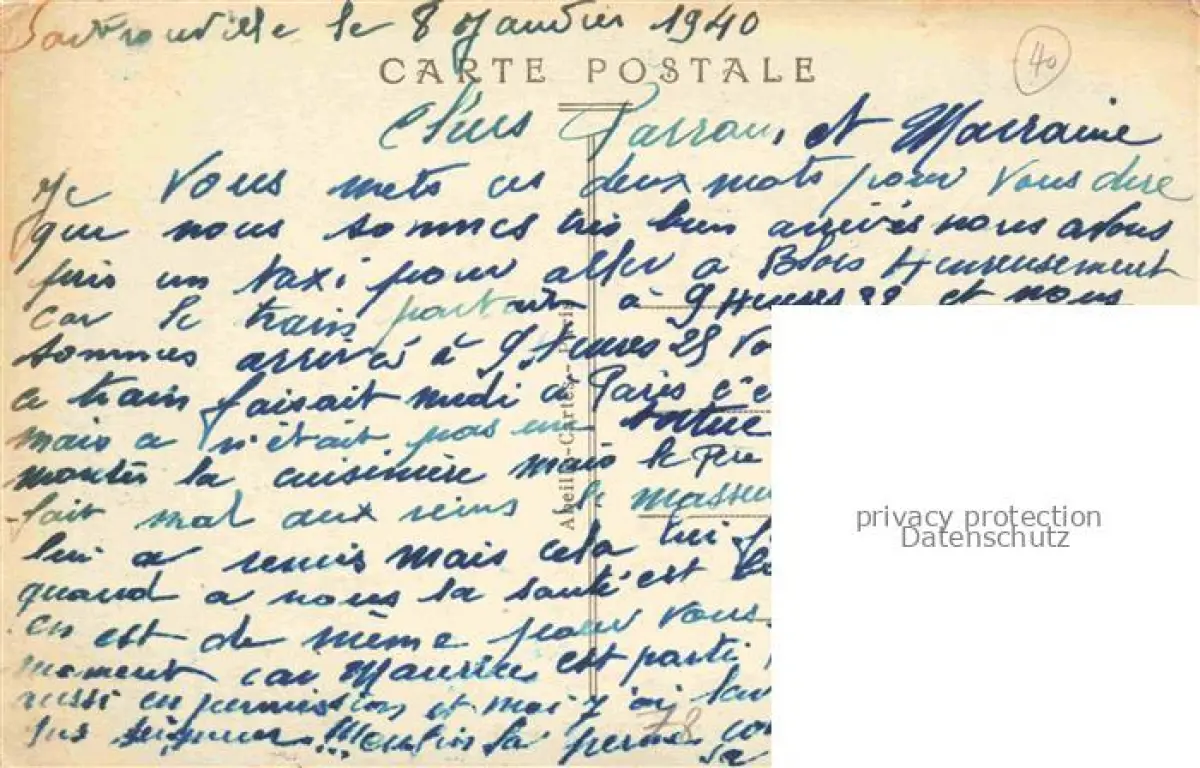 Sartrouville le 8 Janvier 1940
40
CARTE POSTALE
Chers Parrain, et Marraine
Je vous mets ces deux mots pour vous dire
que nous sommes très bien arrivés nous avons
pris un taxi pour aller a Blois Heureusement
car le train partait à 9 Heures 28 et nous
sommes arrivé à 9 Heures 25
ce train faisait midi a Paris c'e
mais a n'était pas une
montés la cuisinière mais le Père
fait mal aux reins le masseu
lui a remis mais cela lui f
quand a nous la santé est
en est de même pour vous
moment car Maurice est parti
aussi en permission et moi j'ai
enfin la
78
Abeille-Cartes, Paris
privacy protection
Datenschutz